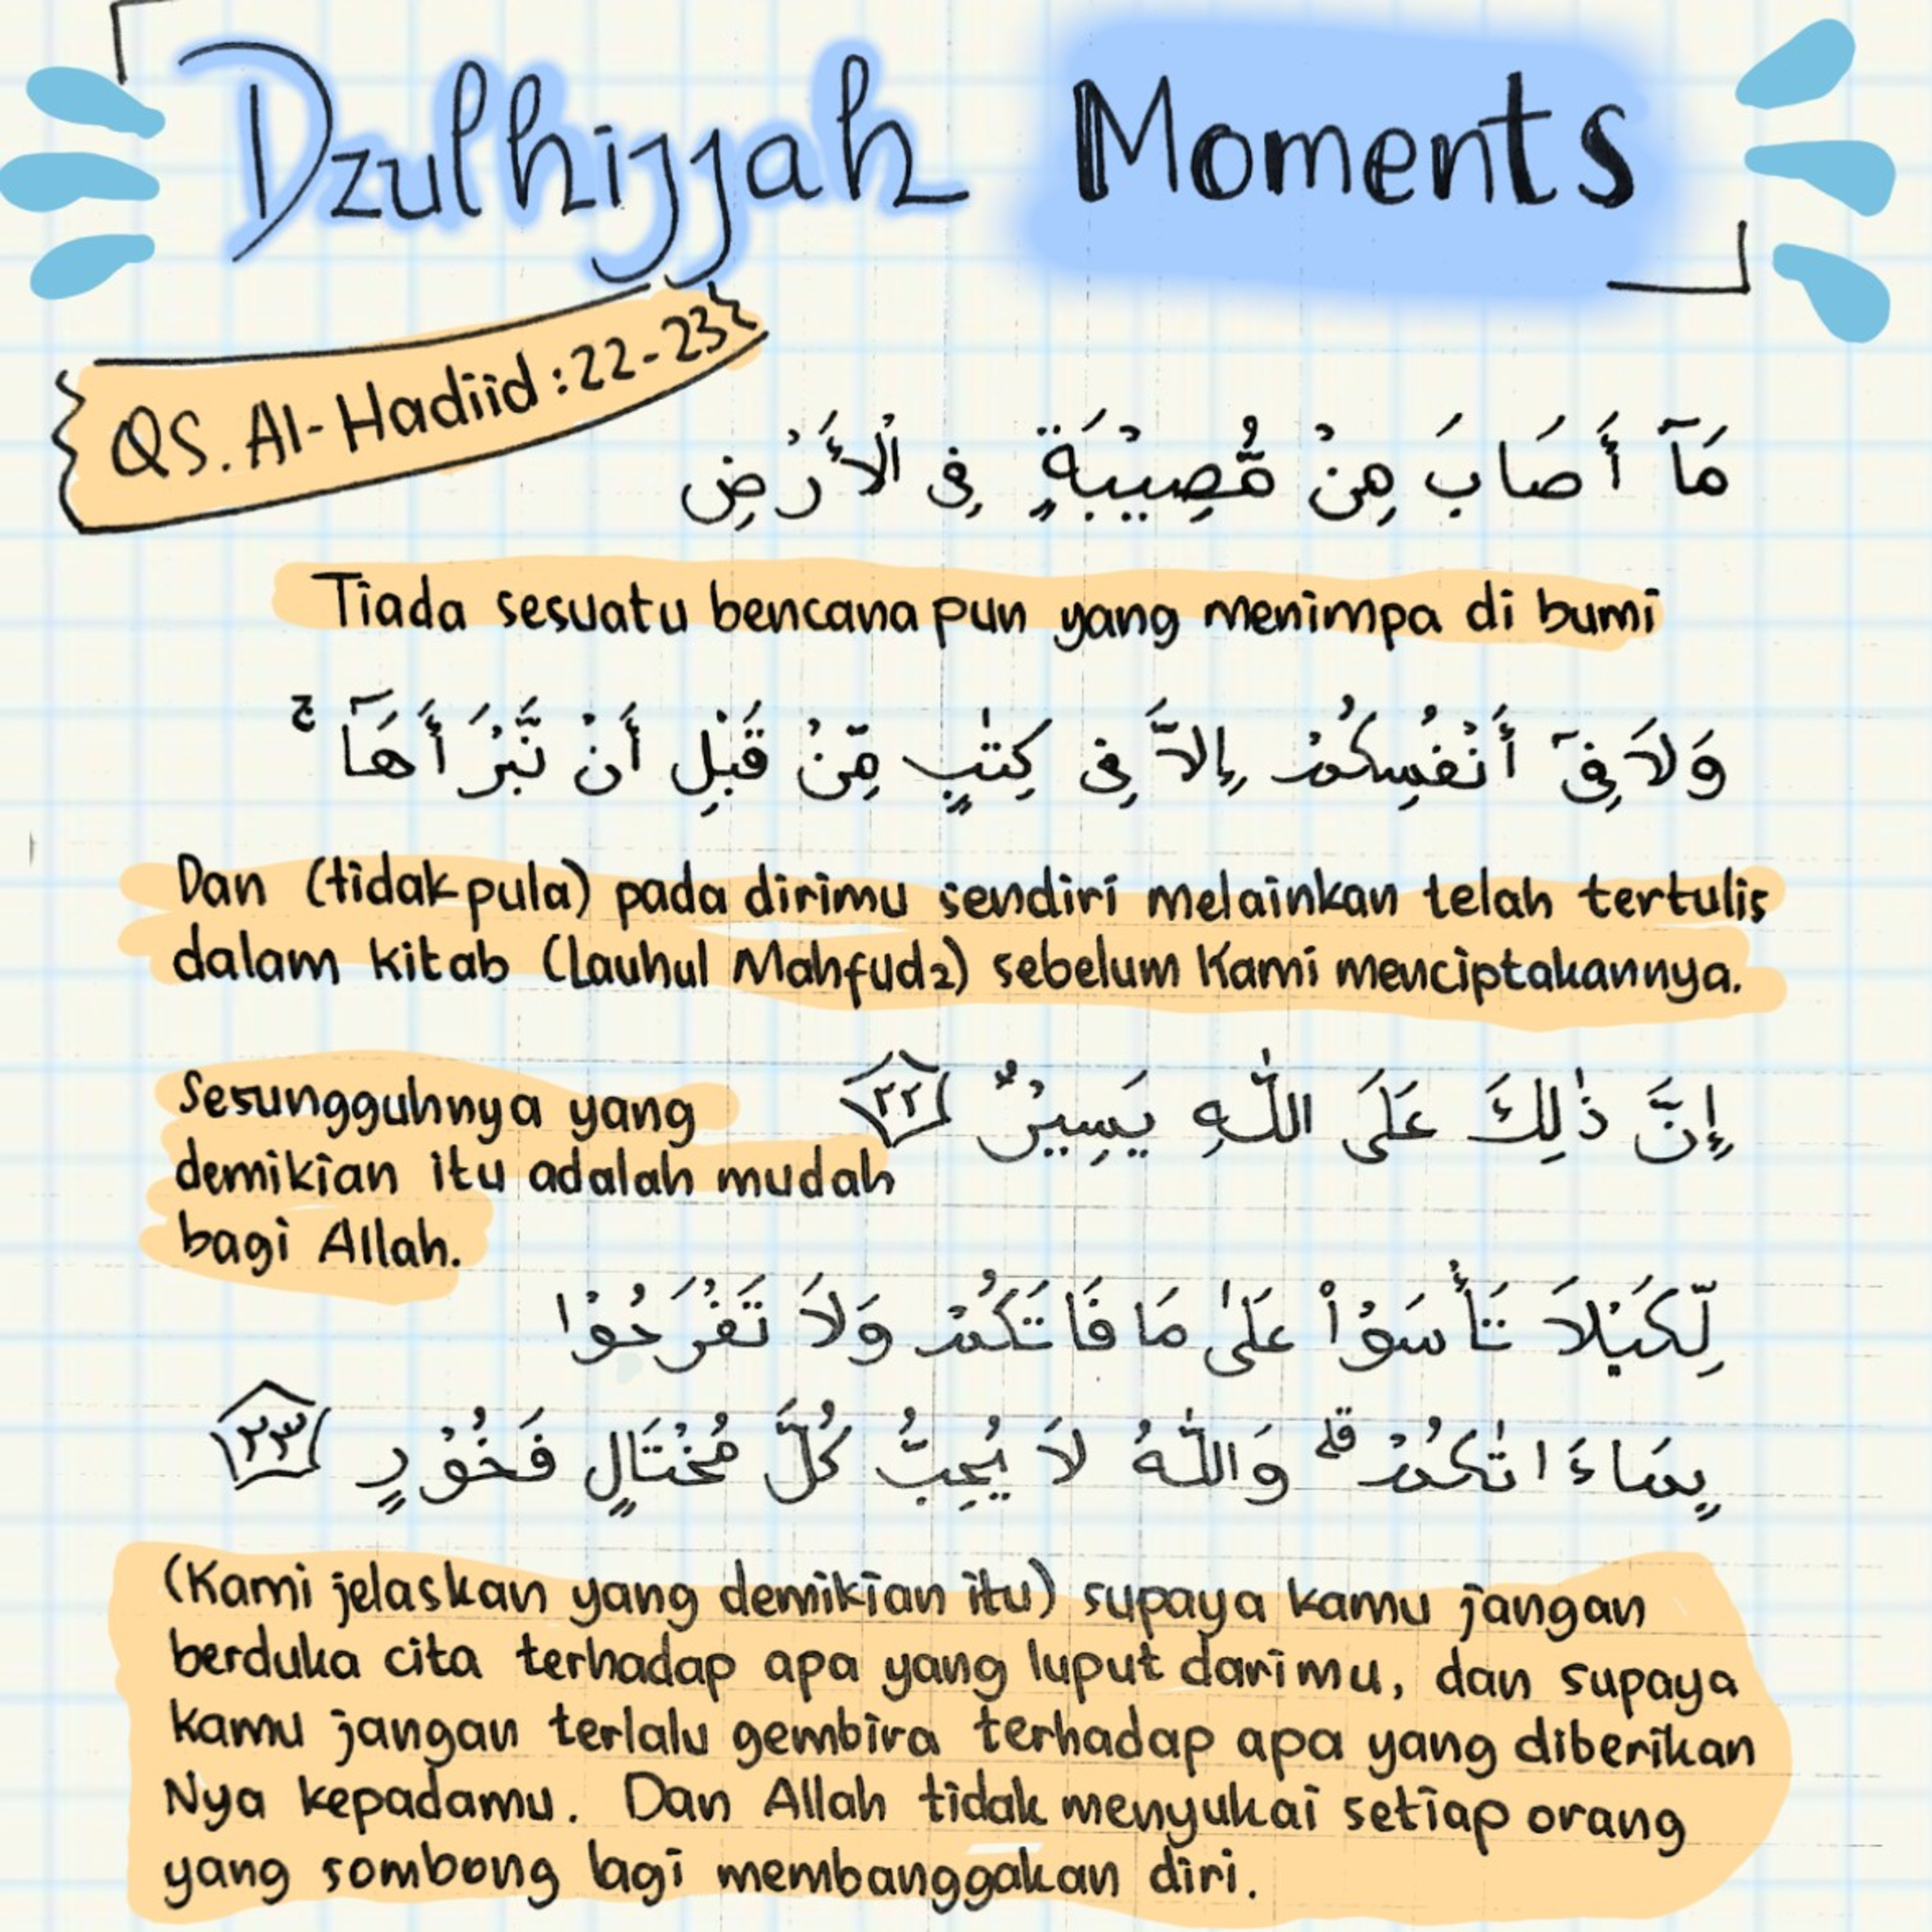 Dzulhijjah Moments
QS. Al-Hadiid : 22-23
مَآ أَصَابَ مِنْ مُّصِيْبَةٍ فِى الْأَرْضِ
Tiada sesuatu bencana pun yang menimpa di bumi
وَلاَ فِىٓ أَنْفُسِكُمْ إِلاَّ فِى كِتٰبٍ مِّنْ قَبْلِ أَنْ نَّبْرَأَهَآ ۚ
Dan (tidak pula) pada dirimu sendiri melainkan telah tertulis
dalam kitab (Lauhul Mahfudz) sebelum Kami menciptakannya.
إِنَّ ذٰلِكَ عَلَى اللّٰهِ يَسِيْرٌ ٢٢
Sesungguhnya yang
demikian itu adalah mudah
bagi Allah.
لِّكَيْلاَ تَأْسَوْاْ عَلٰى مَا فَاتَكُمْ وَلاَ تَفْرَحُوْا
بِمَاءَ اتٰكُمْ ۗ وَاللّٰهُ لاَ يُحِبُّ كُلَّ مُخْتَالٍ فَخُوْرٍ ٢٣
(Kami jelaskan yang demikian itu) supaya kamu jangan
berduka cita terhadap apa yang luput darimu, dan supaya
kamu jangan terlalu gembira terhadap apa yang diberikan
Nya kepadamu. Dan Allah tidak menyukai setiap orang
yang sombong lagi membanggakan diri.